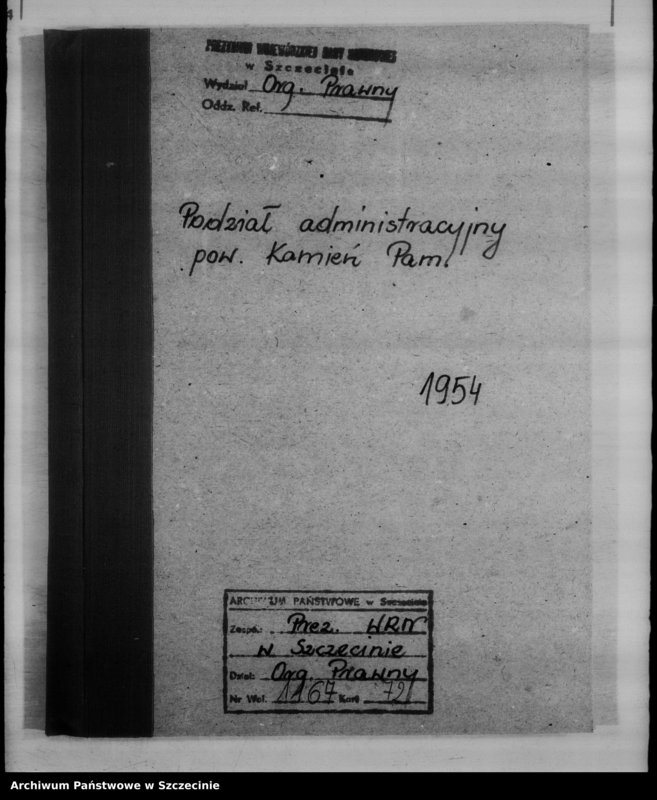 PREZYDIUM WOJEWÓDZKIEJ RADY NARODOWEJ
w Szczecinie
Wydział Org. Prawny
Oddz. Ref.
Podział administracyjny
pow. Kamień Pom.
1954
ARCHIWUM PAŃSTWOWE w Szczecinie
Zespó.: Prez. WRN
w Szczecinie
Dział: Org. Prawny
Nr Wol. 1167 Kart 72
Archiwum Państwowe w Szczecinie